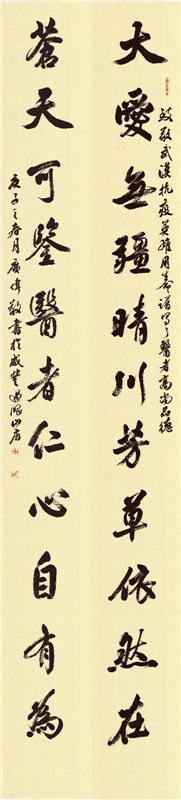 致敬武漢抗疫英雄用譜寫了醫者高尚品德
大愛無疆晴川芳草依然在
蒼天可鑒醫者仁心自有為
庚子之春月廣偉敬書於山房